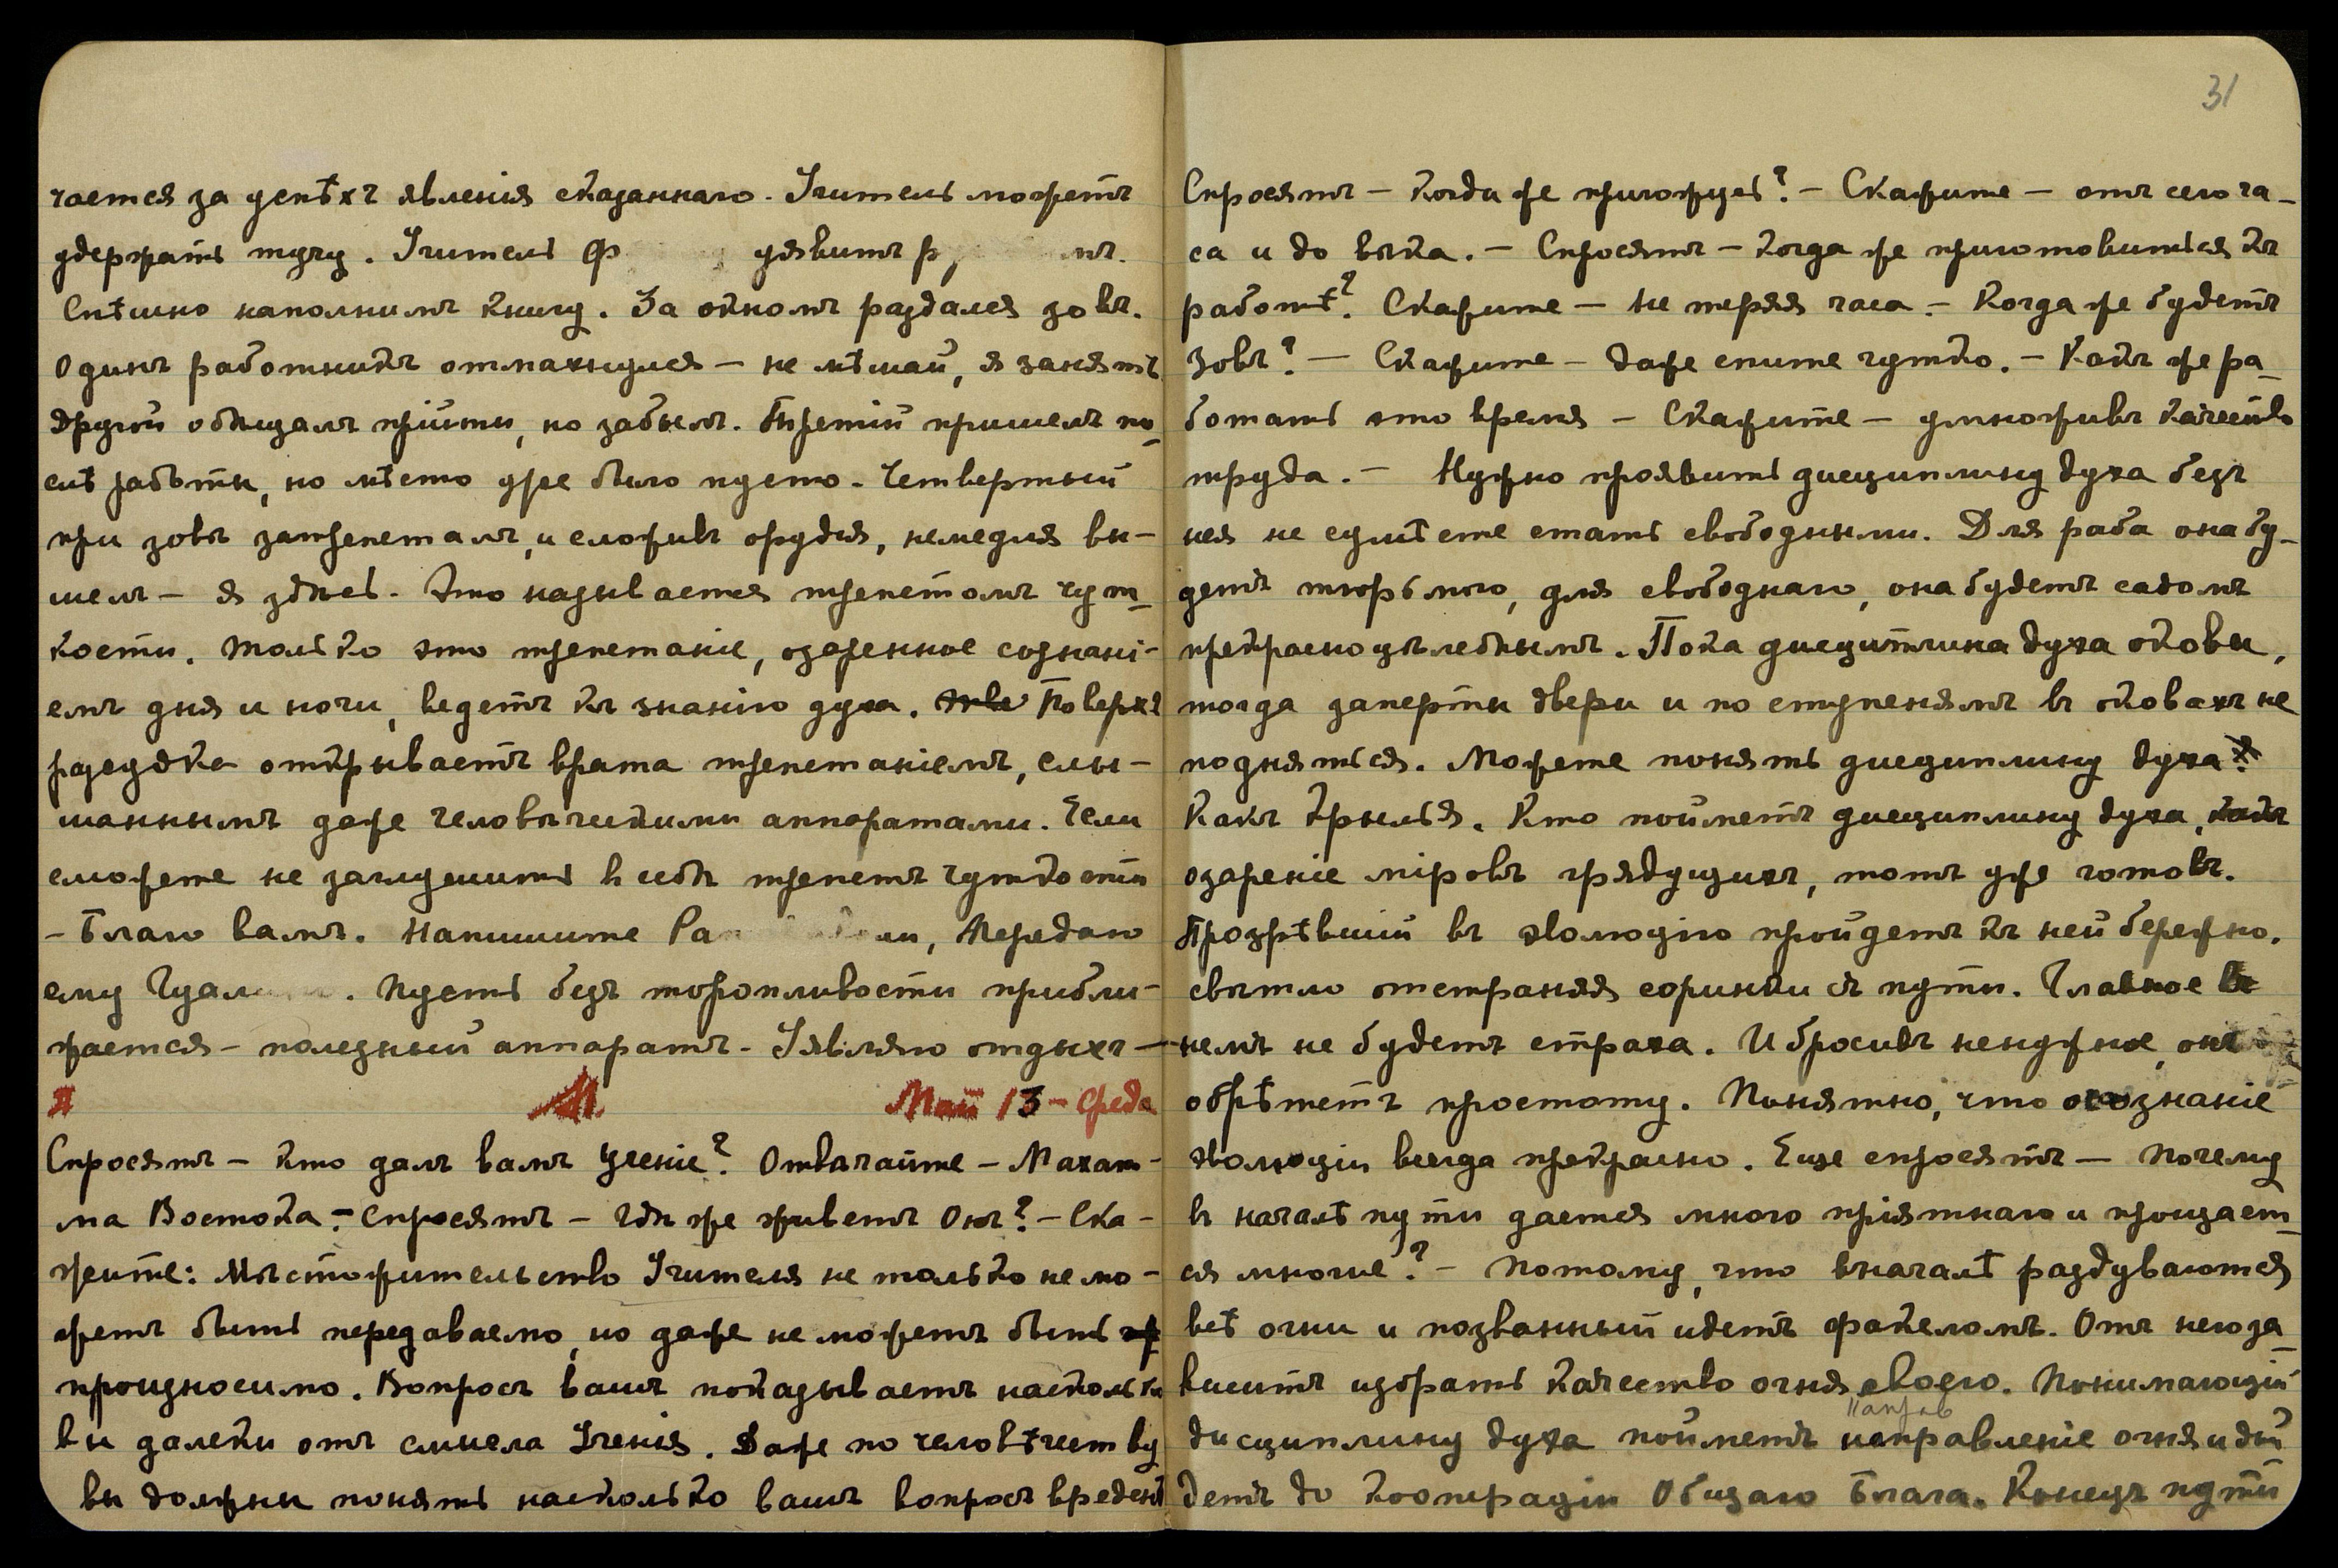 чается за успѣхъ явленія сказаннаго. Учитель можетъ
удержать тучу. Учитель уявитъ
Спѣшно наполнилъ книгу. За окномъ раздался зовъ.
Одинъ работникъ отмахнулся – не мѣшай, я занятъ.
Другой обѣщалъ прійти, но забылъ. Третій пришелъ по-
слѣ работы, но мѣсто уже было пусто. Четвертый
при зовѣ затрепеталъ, и сложивъ орудія, немедля вы-
шелъ – я здѣсь. Это называется трепетомъ чут-
кости. Только это трепетаніе, озаренное сознані-
емъ дня и ночи, ведетъ къ знанію духа. Поверхъ
разсудка открываетъ врата трепетаніемъ, слы-
шаннымъ даже человѣческими аппаратами. Если
сможете не заглушить въ себѣ трепетъ чуткости
– Благо вамъ. Напишите Передаю
ему Пусть безъ торопливости прибли-
жается – полезный аппаратъ. Уявляю отдыхъ –
Я М. Май 13 – Среда
Спросятъ – кто далъ вамъ Ученіе? Отвѣчайте – Махат-
ма Востока. – Спросятъ – гдѣ же живетъ Онъ? – Ска-
жите: Мѣстожительство Учителя не только не мо-
жетъ быть передаваемо, но даже не можетъ быть
произносимо. Вопросъ вашъ показываетъ насколько
вы далеки отъ смысла Ученія. Даже по человѣчеству
вы должны понять насколько вашъ вопросъ вреденъ
31
Спросятъ – Когда же пригожусь? – Скажите – отъ сего ча-
са и до вѣка. – Спросятъ – когда же приготовиться къ
работѣ? Скажите – не теряя часа. – Когда же будетъ
Зовъ? – Скажите – даже спите чутко. – Какъ же ра-
ботать это время – Скажите – умноживъ качество
труда. – Нужно проявить дисциплину духа безъ
нея не сумѣете стать свободными. Для раба она бу-
детъ тюрьмою, для свободнаго, она будетъ садомъ
прекрасноцѣлебнымъ. Пока дисциплина духа оковы,
тогда заперты двери и по ступенямъ въ оковахъ не
подняться. Можете понять дисциплину духа
Какъ крылья. Кто пойметъ дисциплину духа, какъ
озареніе міровъ грядущихъ, тотъ уже готовъ.
Прозрѣвшій въ эволюцію пройдетъ къ ней бережно.
свѣтло отстраняя соринки съ пути. Главное въ
немъ не будетъ страха. И бросивъ ненужное, онъ
обрѣтетъ простоту. Понятно, что осознаніе
эволюціи всегда прекрасно. Еще спросятъ – Почему
въ началѣ пути дается много пріятнаго и прощает-
ся многое? – Потому, что вначалѣ раздуваются
всѣ огни и позванный идетъ факеломъ. Отъ него за-
виситъ избрать качество огня своего. Понимающій
направ
дисциплину духа пойметъ направленіе огня и дой
детъ до коопераціи Общаго Блага. Конецъ пути